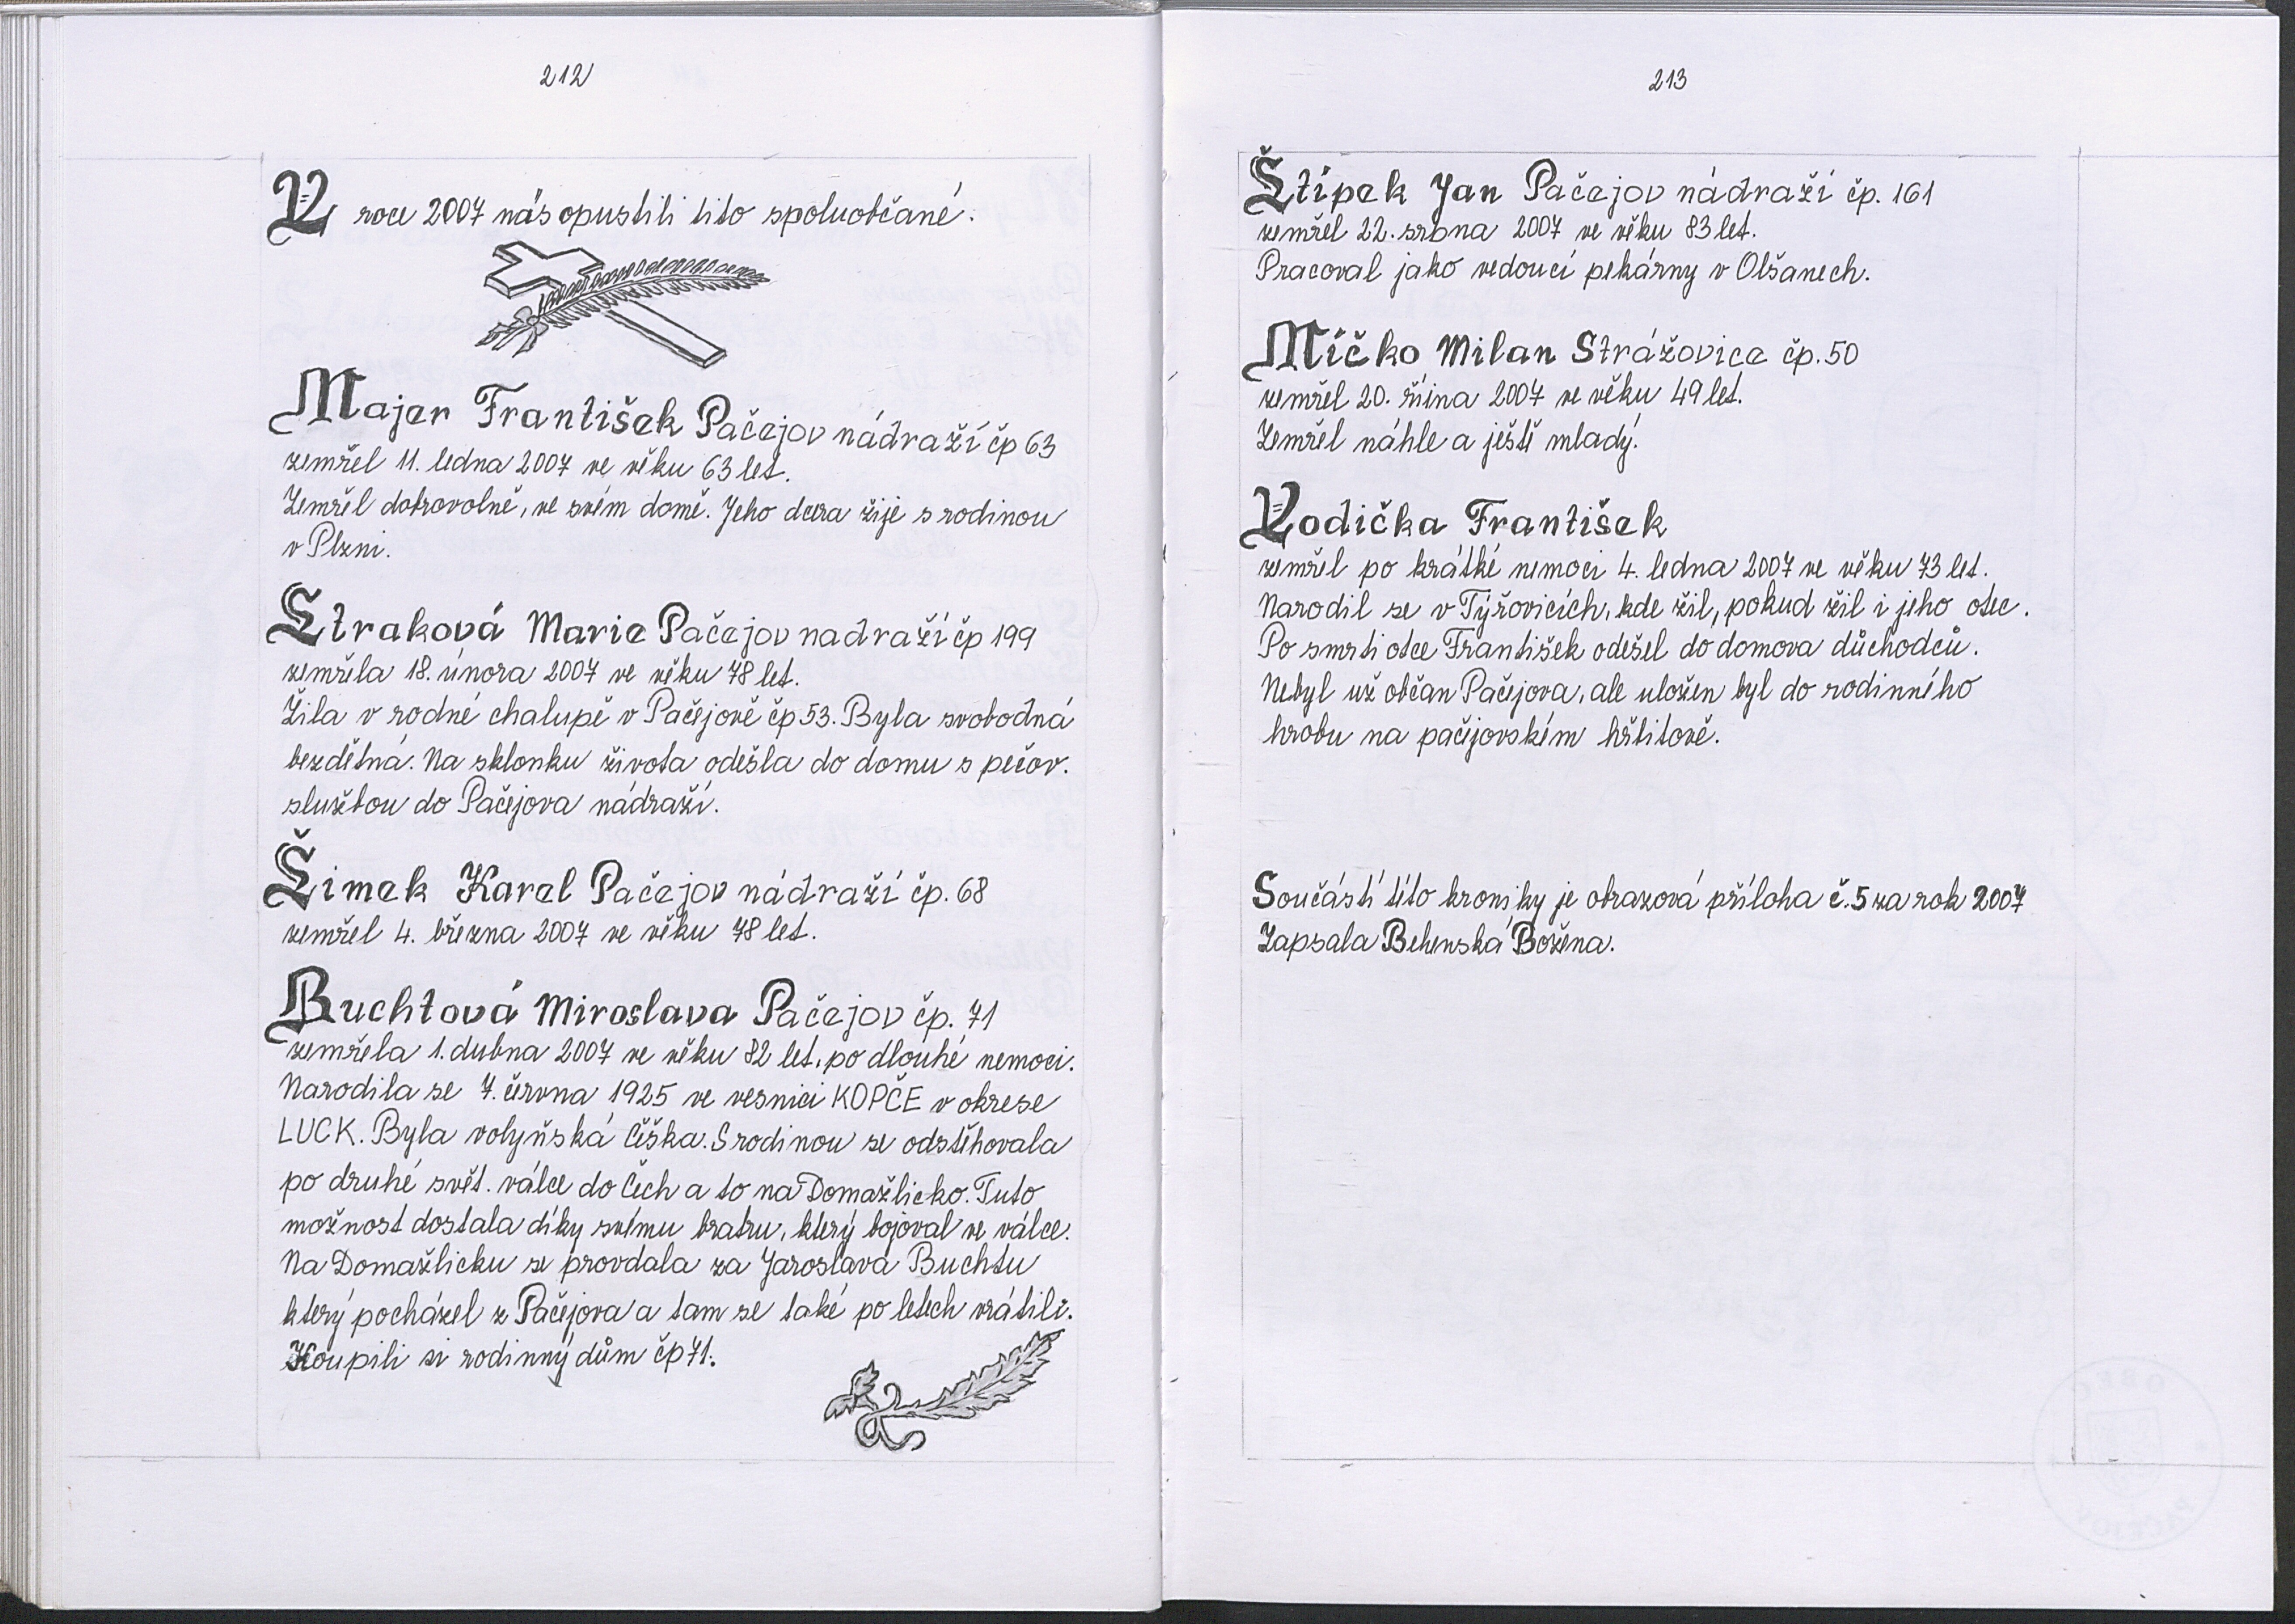 212
V roce 2007 nás opustili tito spoluobčané:
Majer František Pačejov nádraží čp 63
zemřel 11. ledna 2007 ve věku 63 let.
Zemřel dobrovolně, ve svém domě. Jeho dcera žije s rodinou
v Plzni.
Straková Marie Pačejov nadraží čp 199
zemřela 18. února 2007 ve věku 78 let.
Žila v rodné chalupě v Pačejově čp 53. Byla svobodná
bezdětná. Na sklonku života odešla do domu s pečov.
službou do Pačejova nádraží.
Šimek Karel Pačejov nádraží čp. 68
zemřel 4. března 2007 ve věku 78 let.
Buchtová Miroslava Pačejov čp. 71
zemřela 1. dubna 2007 ve věku 82 let, po dlouhé nemoci.
Narodila se 7. června 1925 ve vesnici KOPČE v okrese
LUCK. Byla volyňská Češka. S rodinou se odstěhovala
po druhé svět. válce do Čech a to na Domažlicko. Tuto
možnost dostala díky svému bratru, který bojoval ve válce.
Na Domažlicku se provdala za Jaroslava Buchtu
který pocházel z Pačejova a tam se také po letech vrátili.
Koupili si rodinný dům čp 71.
213
Štípek Jan Pačejov nádraží čp. 161
zemřel 22. srpna 2007 ve věku 83 let.
Pracoval jako vedoucí pekárny v Olšanech.
Míčko Milan Strážovice čp. 50
zemřel 20. října 2007 ve věku 49 let.
Zemřel náhle a ještě mladý.
Vodička František
zemřel po krátké nemoci 4. ledna 2007 ve věku 73 let.
Narodil se v Týřovicích, kde žil, pokud žil i jeho otec.
Po smrti otce František odešel do domova důchodců.
Nebyl už občan Pačejova, ale uložen byl do rodinného
hrobu na pačejovském hřbitově.
Součástí této kroniky je obrazová příloha č. 5 za rok 2007
Zapsala Behenská Božena.